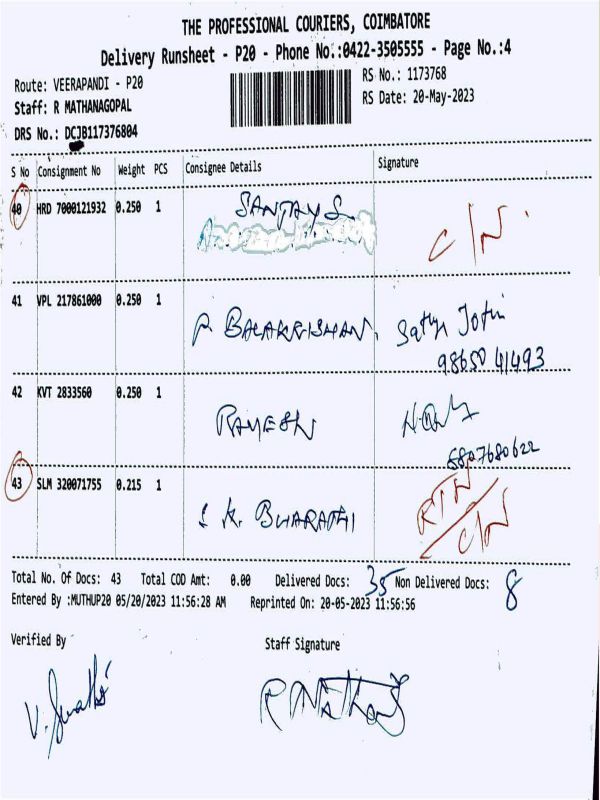 THE PROFESSIONAL COURIERS, COIMBATORE
Delivery Runsheet - P20 - Phone No.:0422-3505555 - Page No.:4
Route: VEERAPANDI - P20
RS No.: 1173768
Staff: R MATHANAGOPAL
RS Date: 20-May-2023
DRS No.: DCJB117376804
S No Consignment No Weight PCS Consignee Details Signature
40 HRD 7000121932 0.250 1 SANJAY S C/N.
41 VPL 217861000 0.250 1 P BALAKRISHAN Sathya Jothi
98650 41493
42 KVT 2833560 0.250 1 RAMESH
6807680622
43 SLM 320071755 0.215 1 S K. BHARATHI RTN
C/N
Total No. Of Docs: 43 Total COD Amt: 0.00 Delivered Docs: 35 Non Delivered Docs: 8
Entered By :MUTHUP20 05/20/2023 11:56:28 AM Reprinted On: 20-05-2023 11:56:56
Verified By Staff Signature